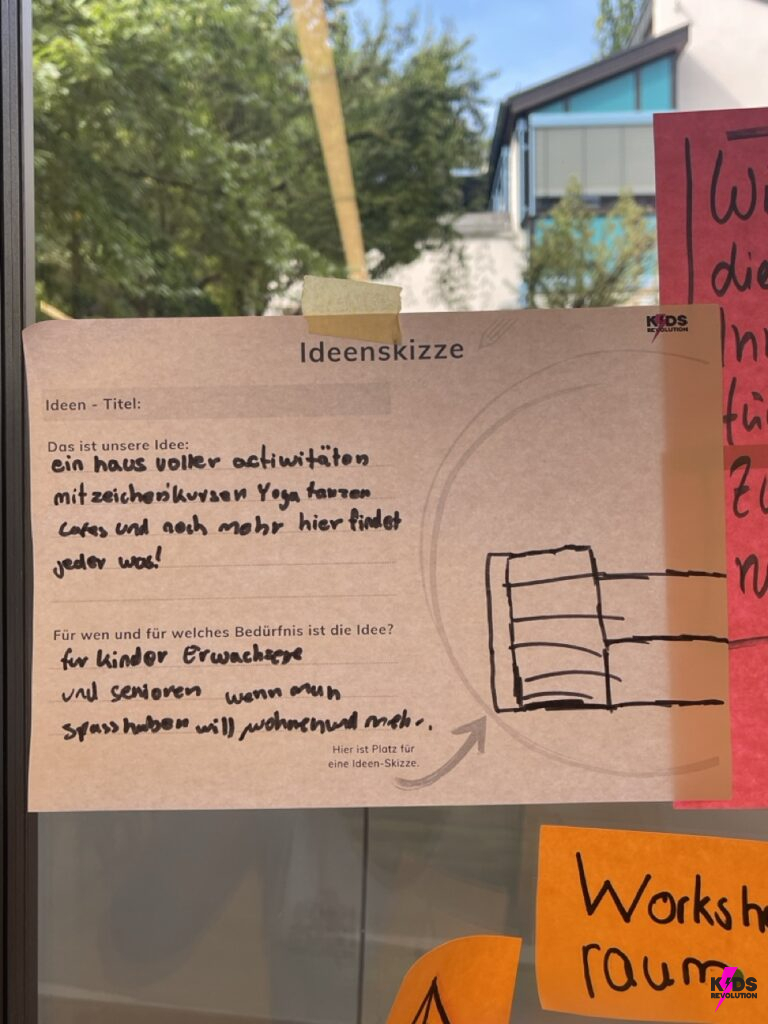 KIDS
REVOLUTION
Ideenskizze
Ideen - Titel:
Das ist unsere Idee:
ein haus voller actiwitäten
mit zeichenkursen Yoga tanzen
cafes und noch mehr hier findet
jeder was!
Für wen und für welches Bedürfnis ist die Idee?
für kinder Erwachsene
und senioren wenn man
spass haben will wohnen und mehr.
Hier ist Platz für
eine Ideen-Skizze.
die
für
Worksh
raum
KIDS
REVOLUTION